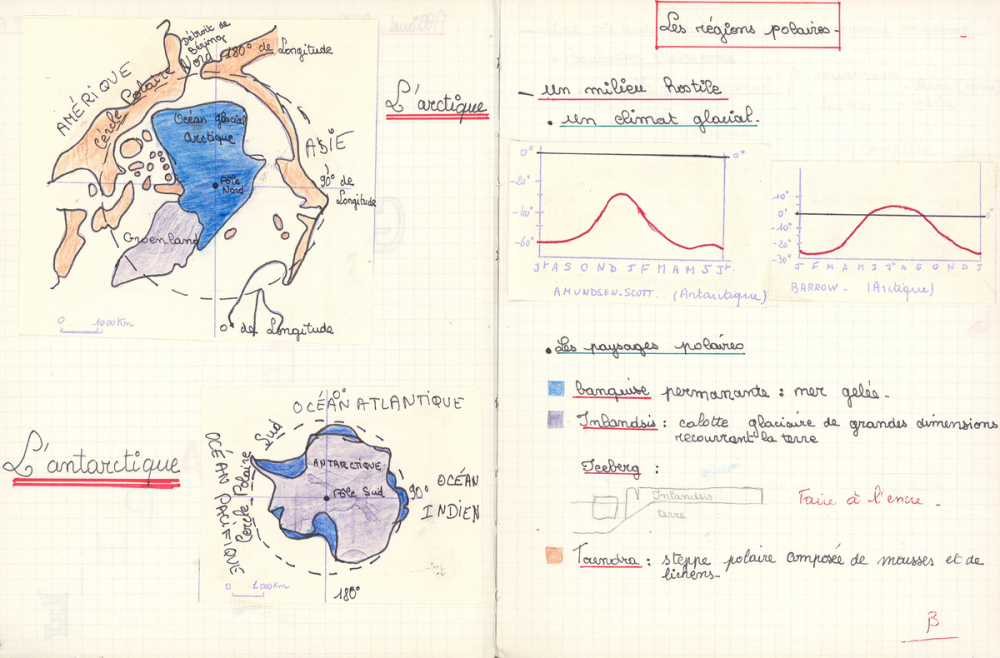 Détroit de
Béring
Nord
180° de Longitude
AMÉRIQUE
Cércle Polaire
Océan glacial
Arctique
ASIE
Pôle
Nord
90° de
Longitude
Groenland
0 1000Km
0° de Longitude
L'arctique
0°
OCÉAN ATLANTIQUE
L'antarctique
OCÉAN PACIFIQUE
Cércle Polaire Sud
ANTARCTIQUE
Pôle Sud
90°
OCÉAN
INDIEN
0 1000Km
180°
Les régions polaires.
— un milieu hostile
• un climat glacial.
0°
0°
-20°
-40°
-60°
Jt A S O N D J F M A M J Jt
AMUNDSEN-SCOTT. (Antartique)
10°
0°
-10°
-20°
-30°
J F M A M J Jt A S O N D J
BARROW. (Arctique)
• Les paysages polaires
banquise permanante : mer gelée.
Inlandsis : calotte glaciaire de grandes dimensions
recouvrant la terre
Iceberg :
Inlandsis
terre
Faire à l'encre.
Toendra : steppe polaire composée de mousses et de
lichens.
B